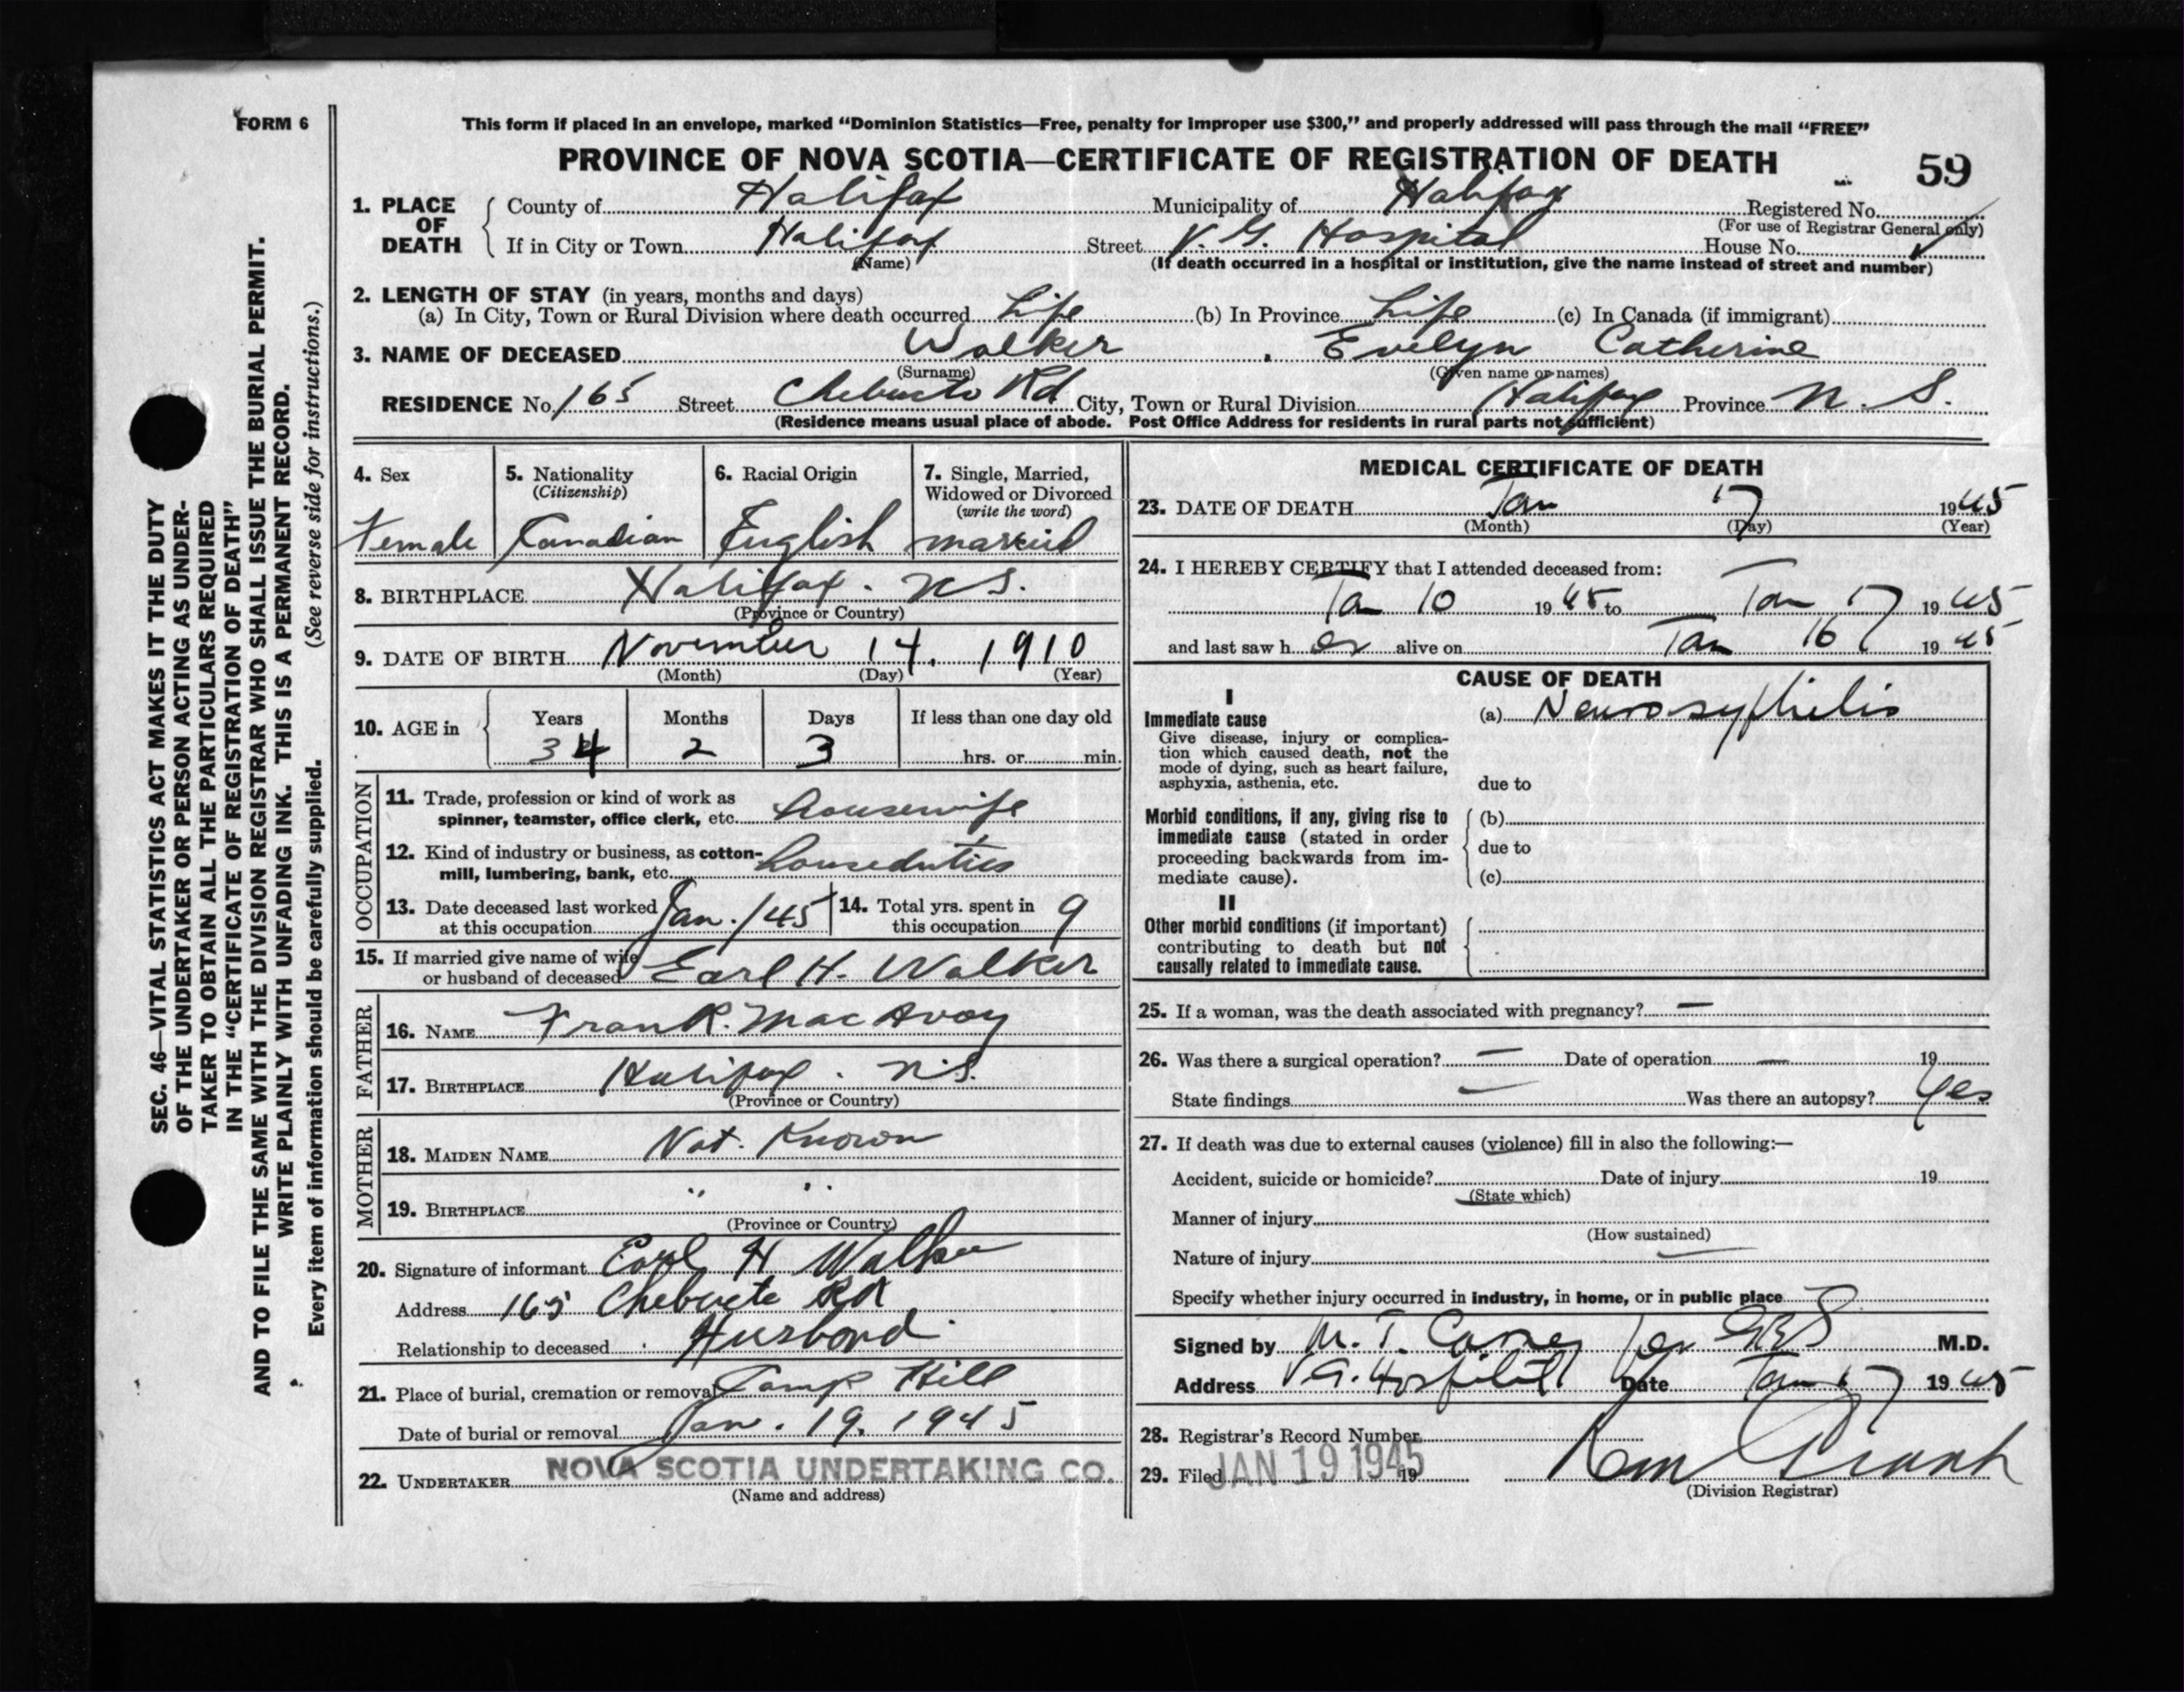 FORM 6
This form if placed in an envelope, marked “Dominion Statistics—Free, penalty for improper use $300,” and properly addressed will pass through the mail “FREE”
PROVINCE OF NOVA SCOTIA—CERTIFICATE OF REGISTRATION OF DEATH 59
1. PLACE OF DEATH County of Halifax Municipality of Halifax Registered No.
(For use of Registrar General only)
If in City or Town Halifax Street V. G. Hospital House No.
(Name) (If death occurred in a hospital or institution, give the name instead of street and number)
2. LENGTH OF STAY (in years, months and days)
(a) In City, Town or Rural Division where death occurred Life (b) In Province Life (c) In Canada (if immigrant)
3. NAME OF DECEASED Walker, Evelyn Catherine
(Surname) (Given name or names)
RESIDENCE No. 165 Street Chebucto Rd City, Town or Rural Division Halifax Province N. S.
(Residence means usual place of abode. Post Office Address for residents in rural parts not sufficient)
4. Sex 5. Nationality 6. Racial Origin 7. Single, Married,
(Citizenship) Widowed or Divorced
(write the word)
Female Canadian English married
8. BIRTHPLACE Halifax. N S.
(Province or Country)
9. DATE OF BIRTH November 14. 1910
(Month) (Day) (Year)
10. AGE in Years Months Days If less than one day old
34 2 3 hrs. or min.
OCCUPATION
11. Trade, profession or kind of work as
spinner, teamster, office clerk, etc. housewife
12. Kind of industry or business, as cotton-
mill, lumbering, bank, etc. houseduties
13. Date deceased last worked
at this occupation Jan. /45 14. Total yrs. spent in
this occupation 9
15. If married give name of wife
or husband of deceased Earl H. Walker
FATHER
16. NAME Frank. MacAvoy
17. BIRTHPLACE Halifax. N.S.
(Province or Country)
MOTHER
18. MAIDEN NAME Not. Known
19. BIRTHPLACE " "
(Province or Country)
20. Signature of informant Earl H Walker
Address 165 Chebucto Rd
Relationship to deceased Husband.
21. Place of burial, cremation or removal Camp Hill
Date of burial or removal Jan. 19. 1945
22. UNDERTAKER NOVA SCOTIA UNDERTAKING CO.
(Name and address)
MEDICAL CERTIFICATE OF DEATH
23. DATE OF DEATH Jan 17 1945
(Month) (Day) (Year)
24. I HEREBY CERTIFY that I attended deceased from:
Jan 10 1945 to Jan 17 1945
and last saw her alive on Jan 16 1945
CAUSE OF DEATH
I
Immediate cause (a) Neurosyphilis
Give disease, injury or complica-
tion which caused death, not the
mode of dying, such as heart failure,
asphyxia, asthenia, etc. due to
Morbid conditions, if any, giving rise to (b)
immediate cause (stated in order
proceeding backwards from im- due to
mediate cause). (c)
II
Other morbid conditions (if important)
contributing to death but not
causally related to immediate cause.
25. If a woman, was the death associated with pregnancy? —
26. Was there a surgical operation? — Date of operation — 19
State findings — Was there an autopsy? Yes
27. If death was due to external causes (violence) fill in also the following:—
Accident, suicide or homicide? Date of injury 19
(State which)
Manner of injury
(How sustained)
Nature of injury
Specify whether injury occurred in industry, in home, or in public place
Signed by M. T. M.D.
Address V.G. Hospital Date Jan 17 1945
28. Registrar's Record Number
29. Filed JAN 19 1945 19
(Division Registrar)
SEC. 46—VITAL STATISTICS ACT MAKES IT THE DUTY
OF THE UNDERTAKER OR PERSON ACTING AS UNDER-
TAKER TO OBTAIN ALL THE PARTICULARS REQUIRED
IN THE “CERTIFICATE OF REGISTRATION OF DEATH”
AND TO FILE THE SAME WITH THE DIVISION REGISTRAR WHO SHALL ISSUE THE BURIAL PERMIT.
WRITE PLAINLY WITH UNFADING INK. THIS IS A PERMANENT RECORD.
Every item of information should be carefully supplied. (See reverse side for instructions.)